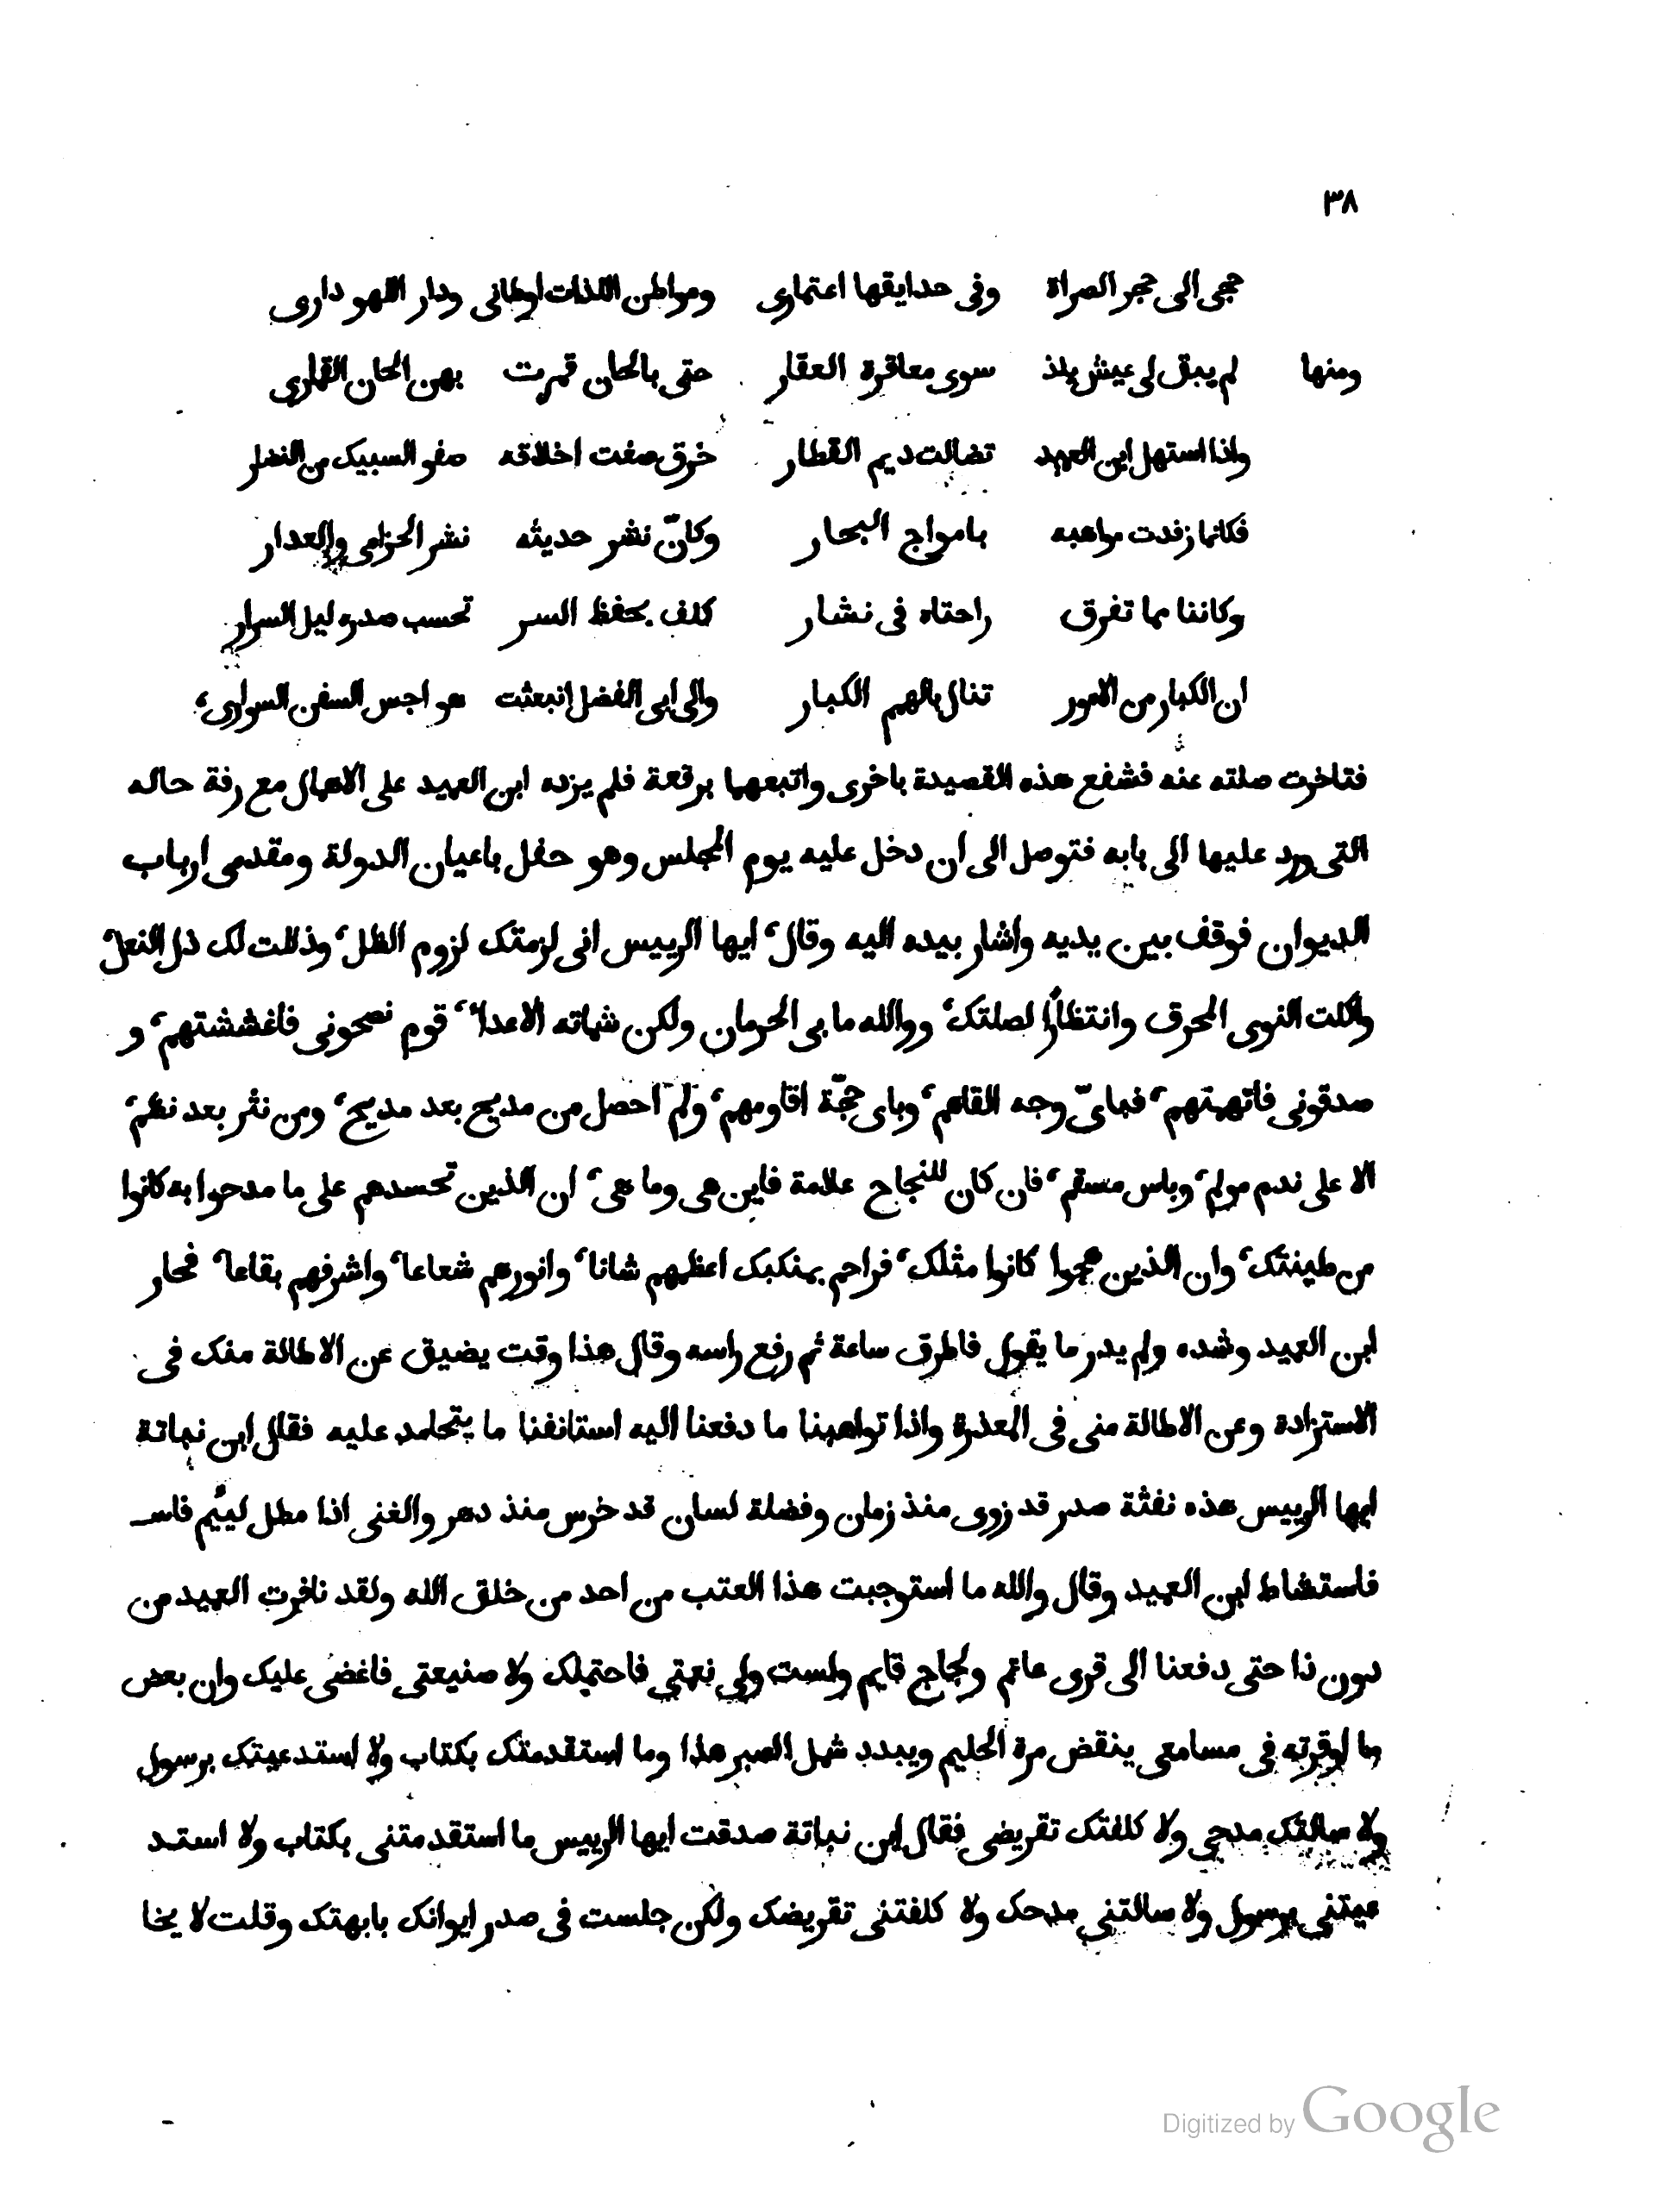 ٣٨
حجى الى حجر الصراة وفى حدايقها اعتمارى ومواطن اللذات اوطانى ودار اللهو دارى
ومنها لم يبق لى عيش يلذ سوى معاقرة العقار حتى بالحان قمرت بهن الحان القمارى
واذا استهل ابن العميد تضالت ديم القطار خرق صفت اخلاقه صفو السبيك من النضار
فكانما زفدت مواهبه بامواج البحار وكانّ نشر حديثه نشر الخزامى والعدار
وكاننا مما تفرق راحتاه فى نشار كلف بحفظ السر تحسب صدره ليل السرار
ان الكبار من الامور تنال بالهمم الكبار والى ابى الفضل انبعثت هواجس السفن السوارى،
فتاخرت صلته عنه فشفع هذه القصيدة باخرى واتبعهما برقعة فلم يزده ابن العميد على الاهمال مع رقة حاله
التى ورد عليها الى بابه فتوصل الى ان دخل عليه يوم المجلس وهو حفل باعيان الدولة ومقدمى ارباب
الديوان فوقف بين يديه واشار بيده اليه وقال، ايها الرييس انى لزمتك لزوم الظل، وذللت لك ذل النعل،
واكلت النوى المحرق وانتظارًا لصلتك، ووالله ما بى الحرمان ولكن شماته الاعدا،، قوم نصحونى فاغششتهم، و
صدقونى فاتهمتهم، فباىّ وجه القاهم، وباى حجّة اقاومهم، ولم احصل من مديح بعد مديح، ومن نثر بعد نظم،
الا على ندم مولم، وباس مسقم، فان كان للنجاح علامة فاين هى وما هى، ان الذين تحسدهم على ما مدحوا به كانوا
من طينتك، وان الذين هجوا كانوا مثلك، فراحم بمنكبك اعظمهم شانا، وانورهم شعاعا، واشرفهم بقاعا، فحار
ابن العميد وشده ولم يدر ما يقول فاطرق ساعة ثم رفع راسه وقال هذا وقت يضيق عن الاطالة منك فى
الاستزادة وعن الاطالة منى فى المعذرة واذا تواهبنا ما دفعنا اليه استانفنا ما يتحامد عليه فقال ابن نباتة
ايها الرييس هذه نفثة صدر قد زوى منذ زمان وفضلة لسان قد خرس منذ دهر والغنى اذا مطل لييم فاسـ
فاستشاط ابن العميد وقال والله ما استوجبت هذا العتب من احد من خلق الله ولقد نافرت العميد من
دون ذا حتى دفعنا الى قرى عاتم ولجاج قايم ولست ولى نعمتى فاحتملك ولا صنيعتى فاغضى عليك وان بعض
ما اوقرته فى مسامعى ينقض مرة الحليم ويبدد شمل الصبر هذا وما استقدمتك بكتاب ولا استدعيتك برسول
ولا سالتك مدحى ولا كلفتك تقريضى فقال ابن نباتة صدقت ايها الرييس ما استقدمتنى بكتاب ولا استد
عيتنى برسول ولا سالتنى مدحك ولا كلفتنى تقريضك ولكن جلست فى صدر ايوانك بابهتك وقلت لا يخا
Digitized by Google